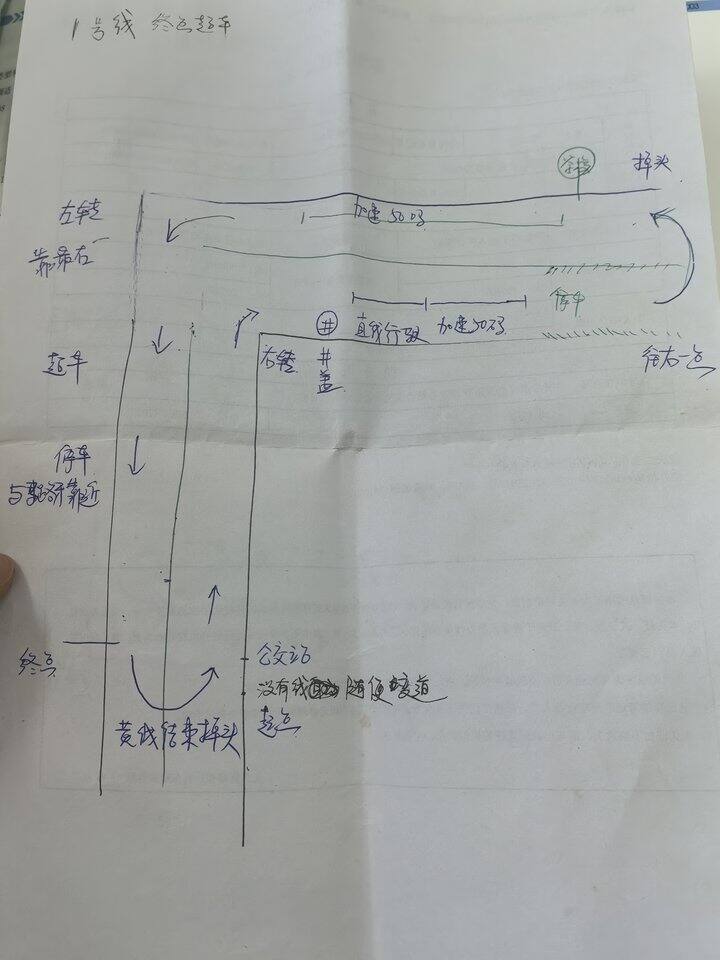 1号线 终点起车
掉头
左转
加速50码
靠最右
停车
井
直线行驶
加速50码
起车
右转
井盖
往右一点
停车
与路牙靠近
终点
公交站
没有线 随便变道
黄线结束掉头
起点